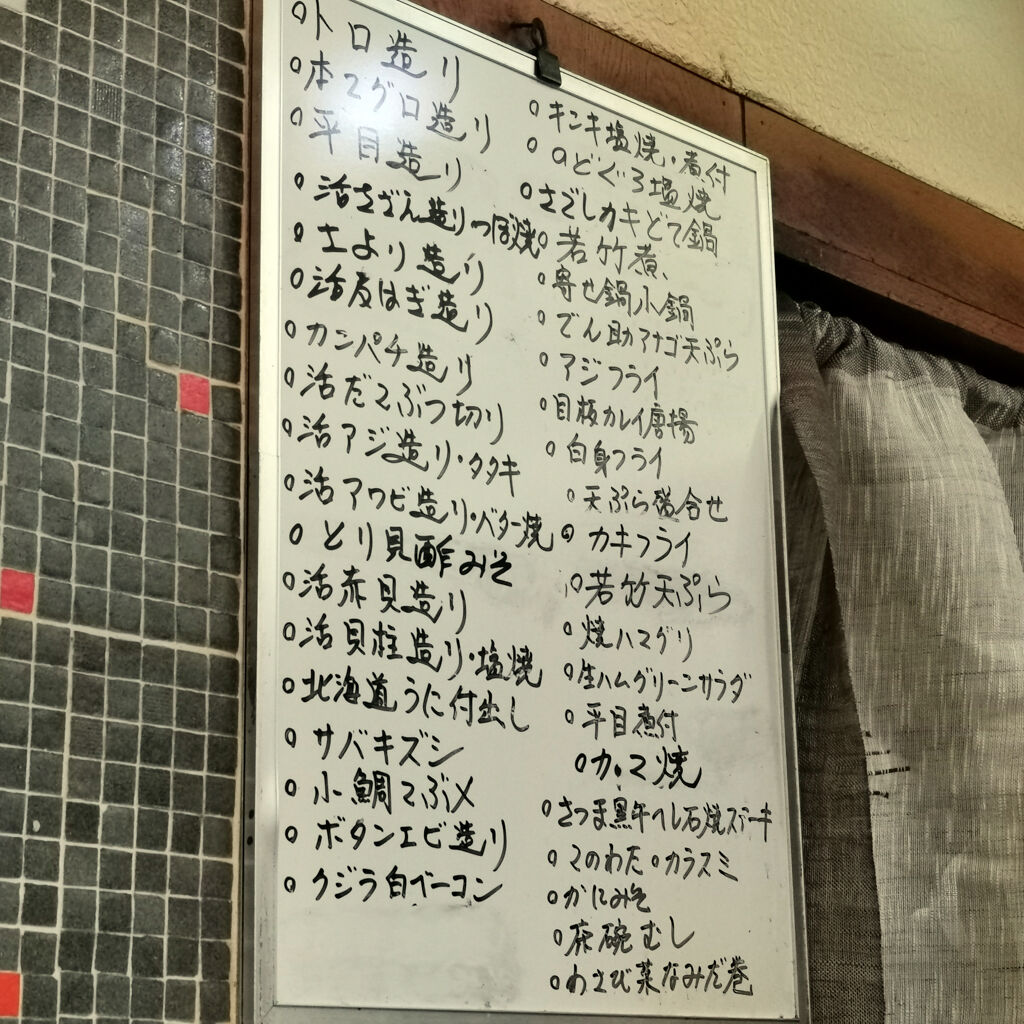 ○トロ造り
○本マグロ造り
○平目造り
○活さざえ造りつぼ焼
○さより造り
○活皮はぎ造り
○カンパチ造り
○活だこぶつ切り
○活アジ造り・タタキ
○活アワビ造り・バター焼
○とり貝酢みそ
○活赤貝造り
○活貝柱造り・塩焼
○北海道うに付出し
○サバキズシ
○小鯛こぶ〆
○ボタンエビ造り
○クジラ白ベーコン
○キンキ塩焼・煮付
○のどぐろ塩焼
○さごしカキどて鍋
○若竹煮
○寄せ鍋小鍋
○でん助アナゴ天ぷら
○アジフライ
○目板カレイ唐揚
○白身フライ
○天ぷら盛合せ
○カキフライ
○若竹天ぷら
○焼ハマグリ
○生ハムグリーンサラダ
○平目煮付
○カマ焼
○さつま黒牛ヘレ石焼ステーキ
○このわた○カラスミ
○かにみそ
○茶碗むし
○わさび菜なみだ巻